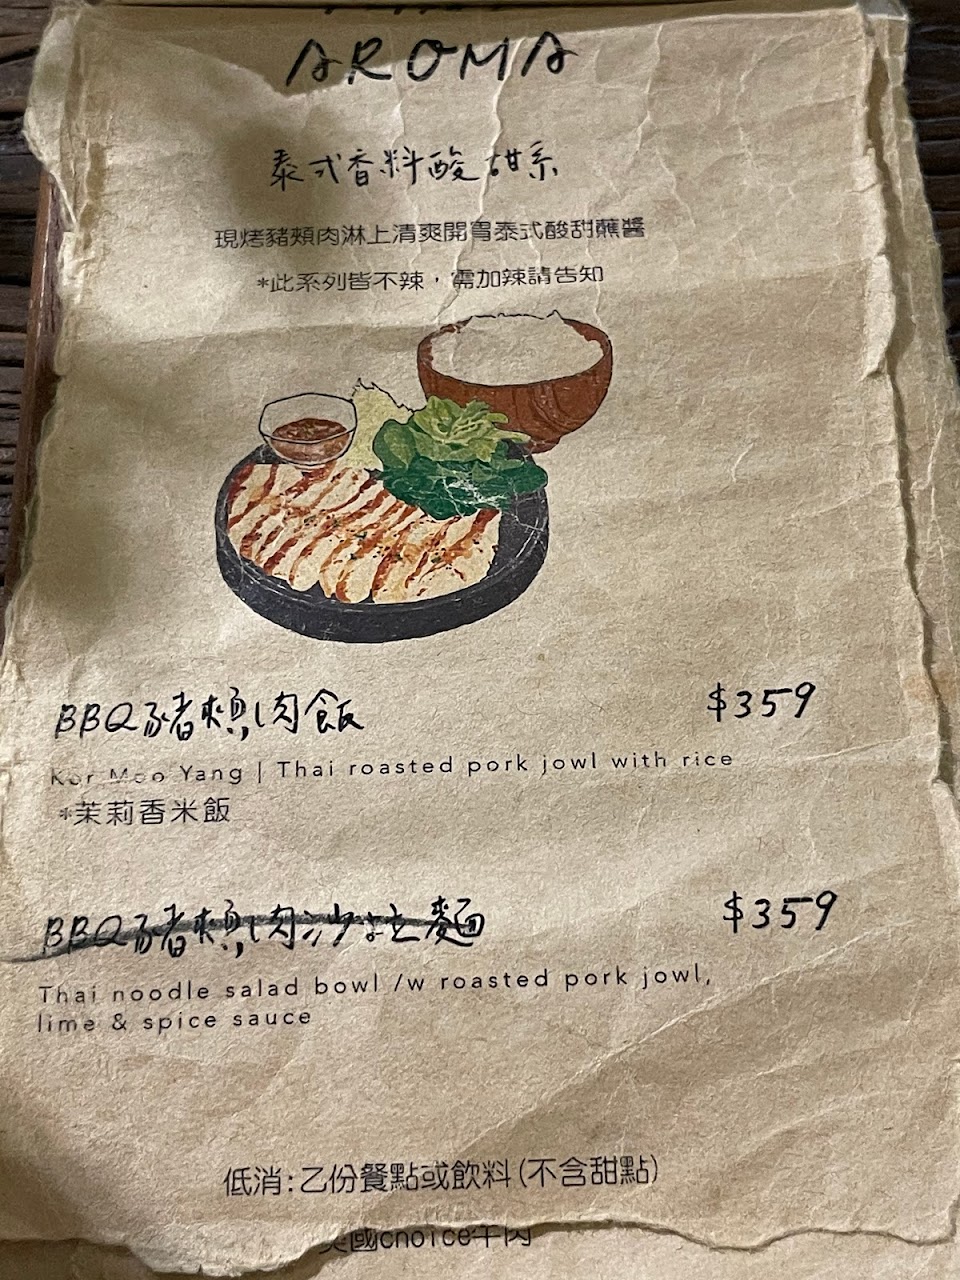 AROMA
泰式香料酸甜系
現烤豬頰肉淋上清爽開胃泰式酸甜蘸醬
*此系列皆不辣，需加辣請告知
BBQ豬頰肉飯 $359
Kor Moo Yang | Thai roasted pork jowl with rice
*茉莉香米飯
BBQ豬頰肉沙拉麵 $359
Thai noodle salad bowl /w roasted pork jowl,
lime & spice sauce
低消:乙份餐點或飲料(不含甜點)
美國choice牛肉